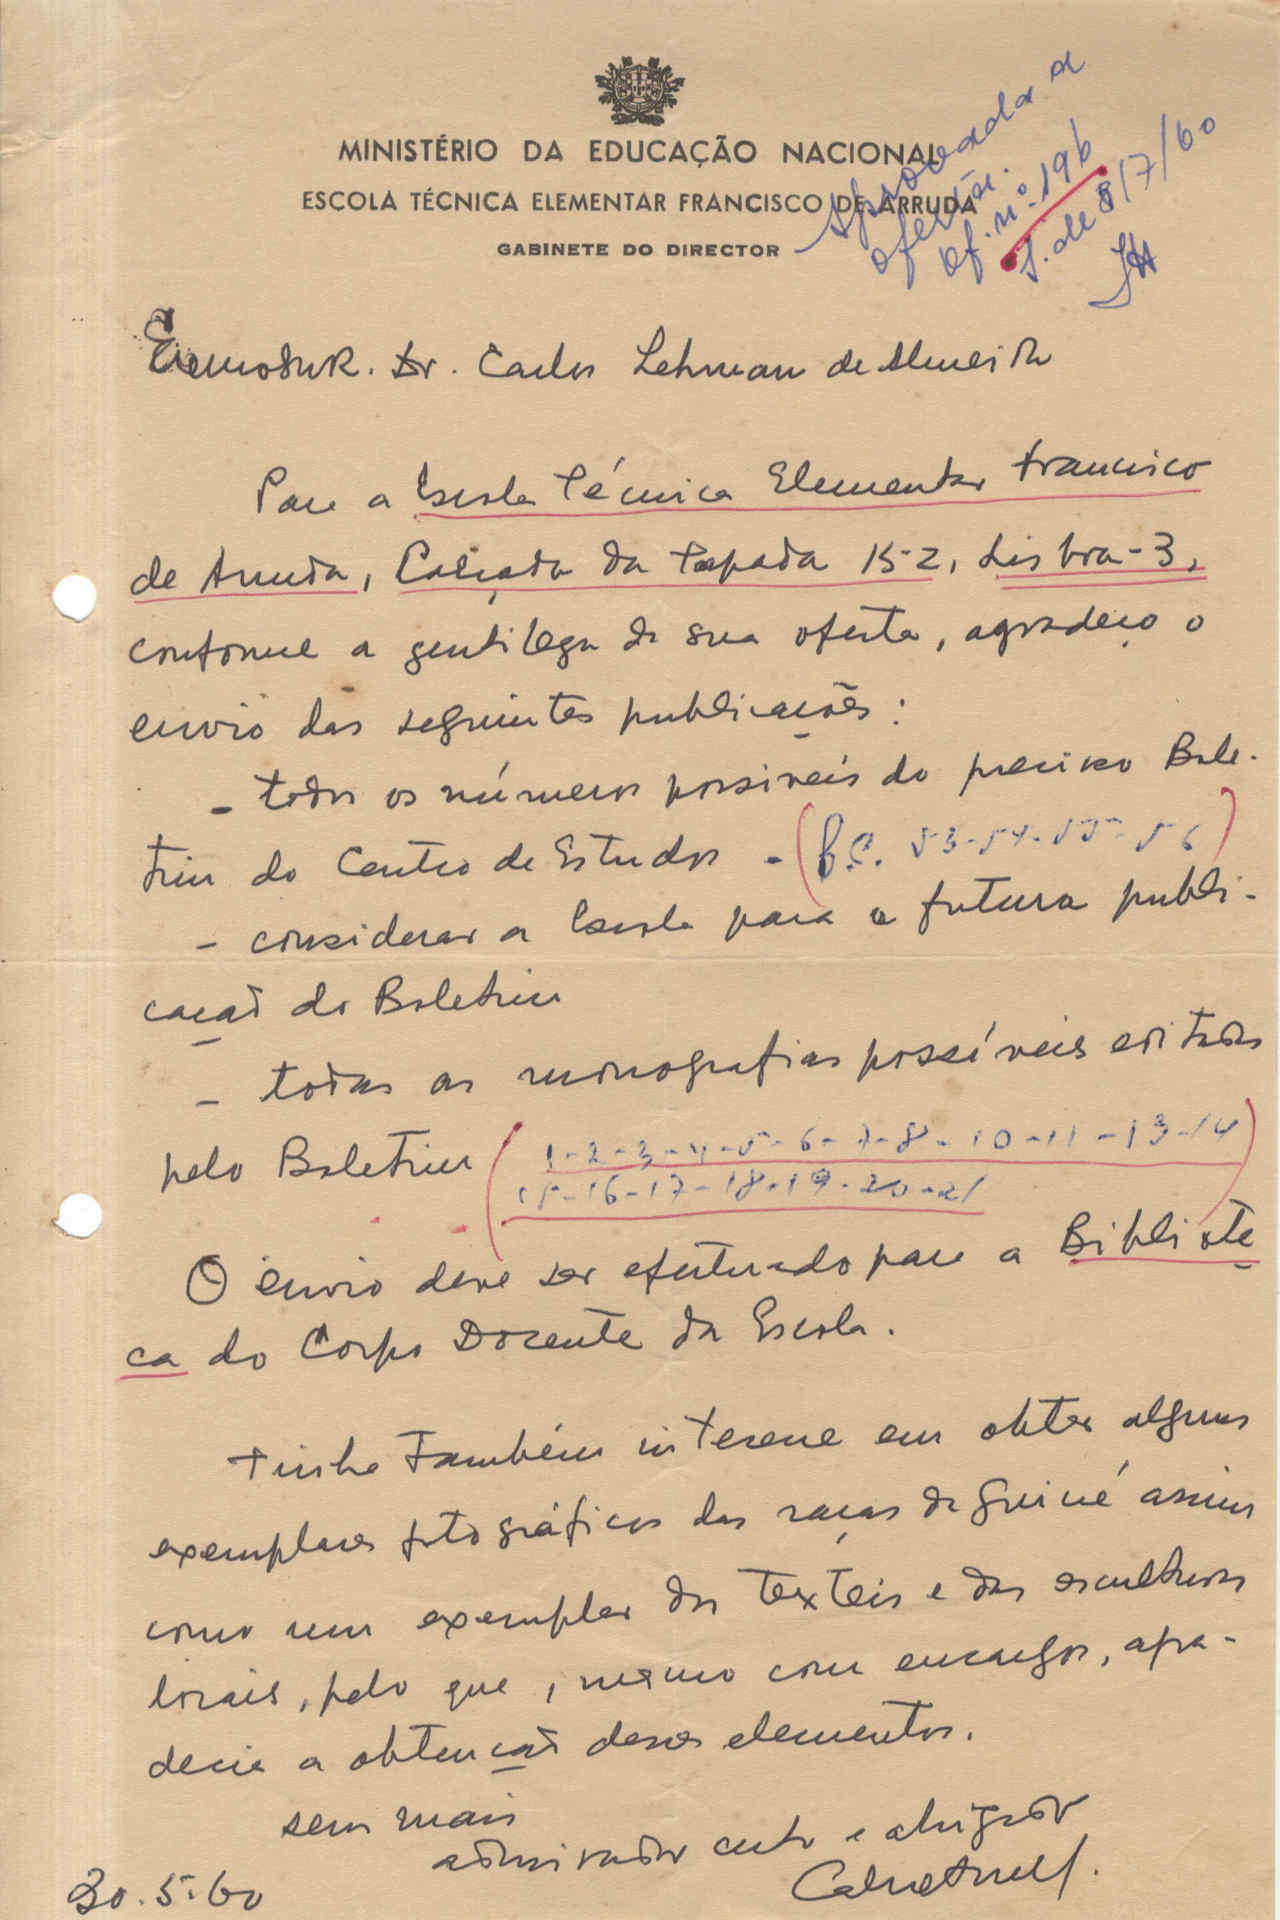 MINISTÉRIO DA EDUCAÇÃO NACIONAL
ESCOLA TÉCNICA ELEMENTAR FRANCISCO DE ARRUDA
GABINETE DO DIRECTOR
Aprovada a
oferta.
Of. nº 196
de 8/7/60
Dr. Carlos Lehman de Almeida
Para a Escola Técnica Elementar Francisco
de Arruda, Calçada da Tapada 152, Lisboa-3,
conforme a gentileza da sua oferta, agradeço o
envio das seguintes publicações:
- todos os números possíveis do precioso Bole-
tim do Centro de Estudos - (53-54-55-56)
- considerar a Escola para a futura publi-
cação do Boletim
- todas as monografias possíveis editadas
pelo Boletim (1-2-3-4-5-6-7-8-10-11-13-14
15-16-17-18-19-20-21)
O envio deve ser efectuado para a Bibliote
ca do Corpo Docente da Escola.
Tinha também interesse em obter alguns
exemplares fotográficos das raças da Guiné assim
como um exemplar dos texteis e das esculturas
locais, pelo que, mesmo com encargos, agra-
decia a obtenção desses elementos.
sem mais
admirador certo e obrigado
30.5.60